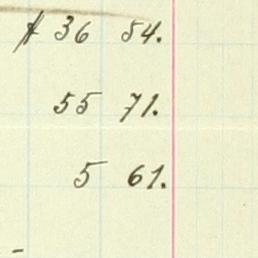 $ 36 54.
55 71.
5 61.